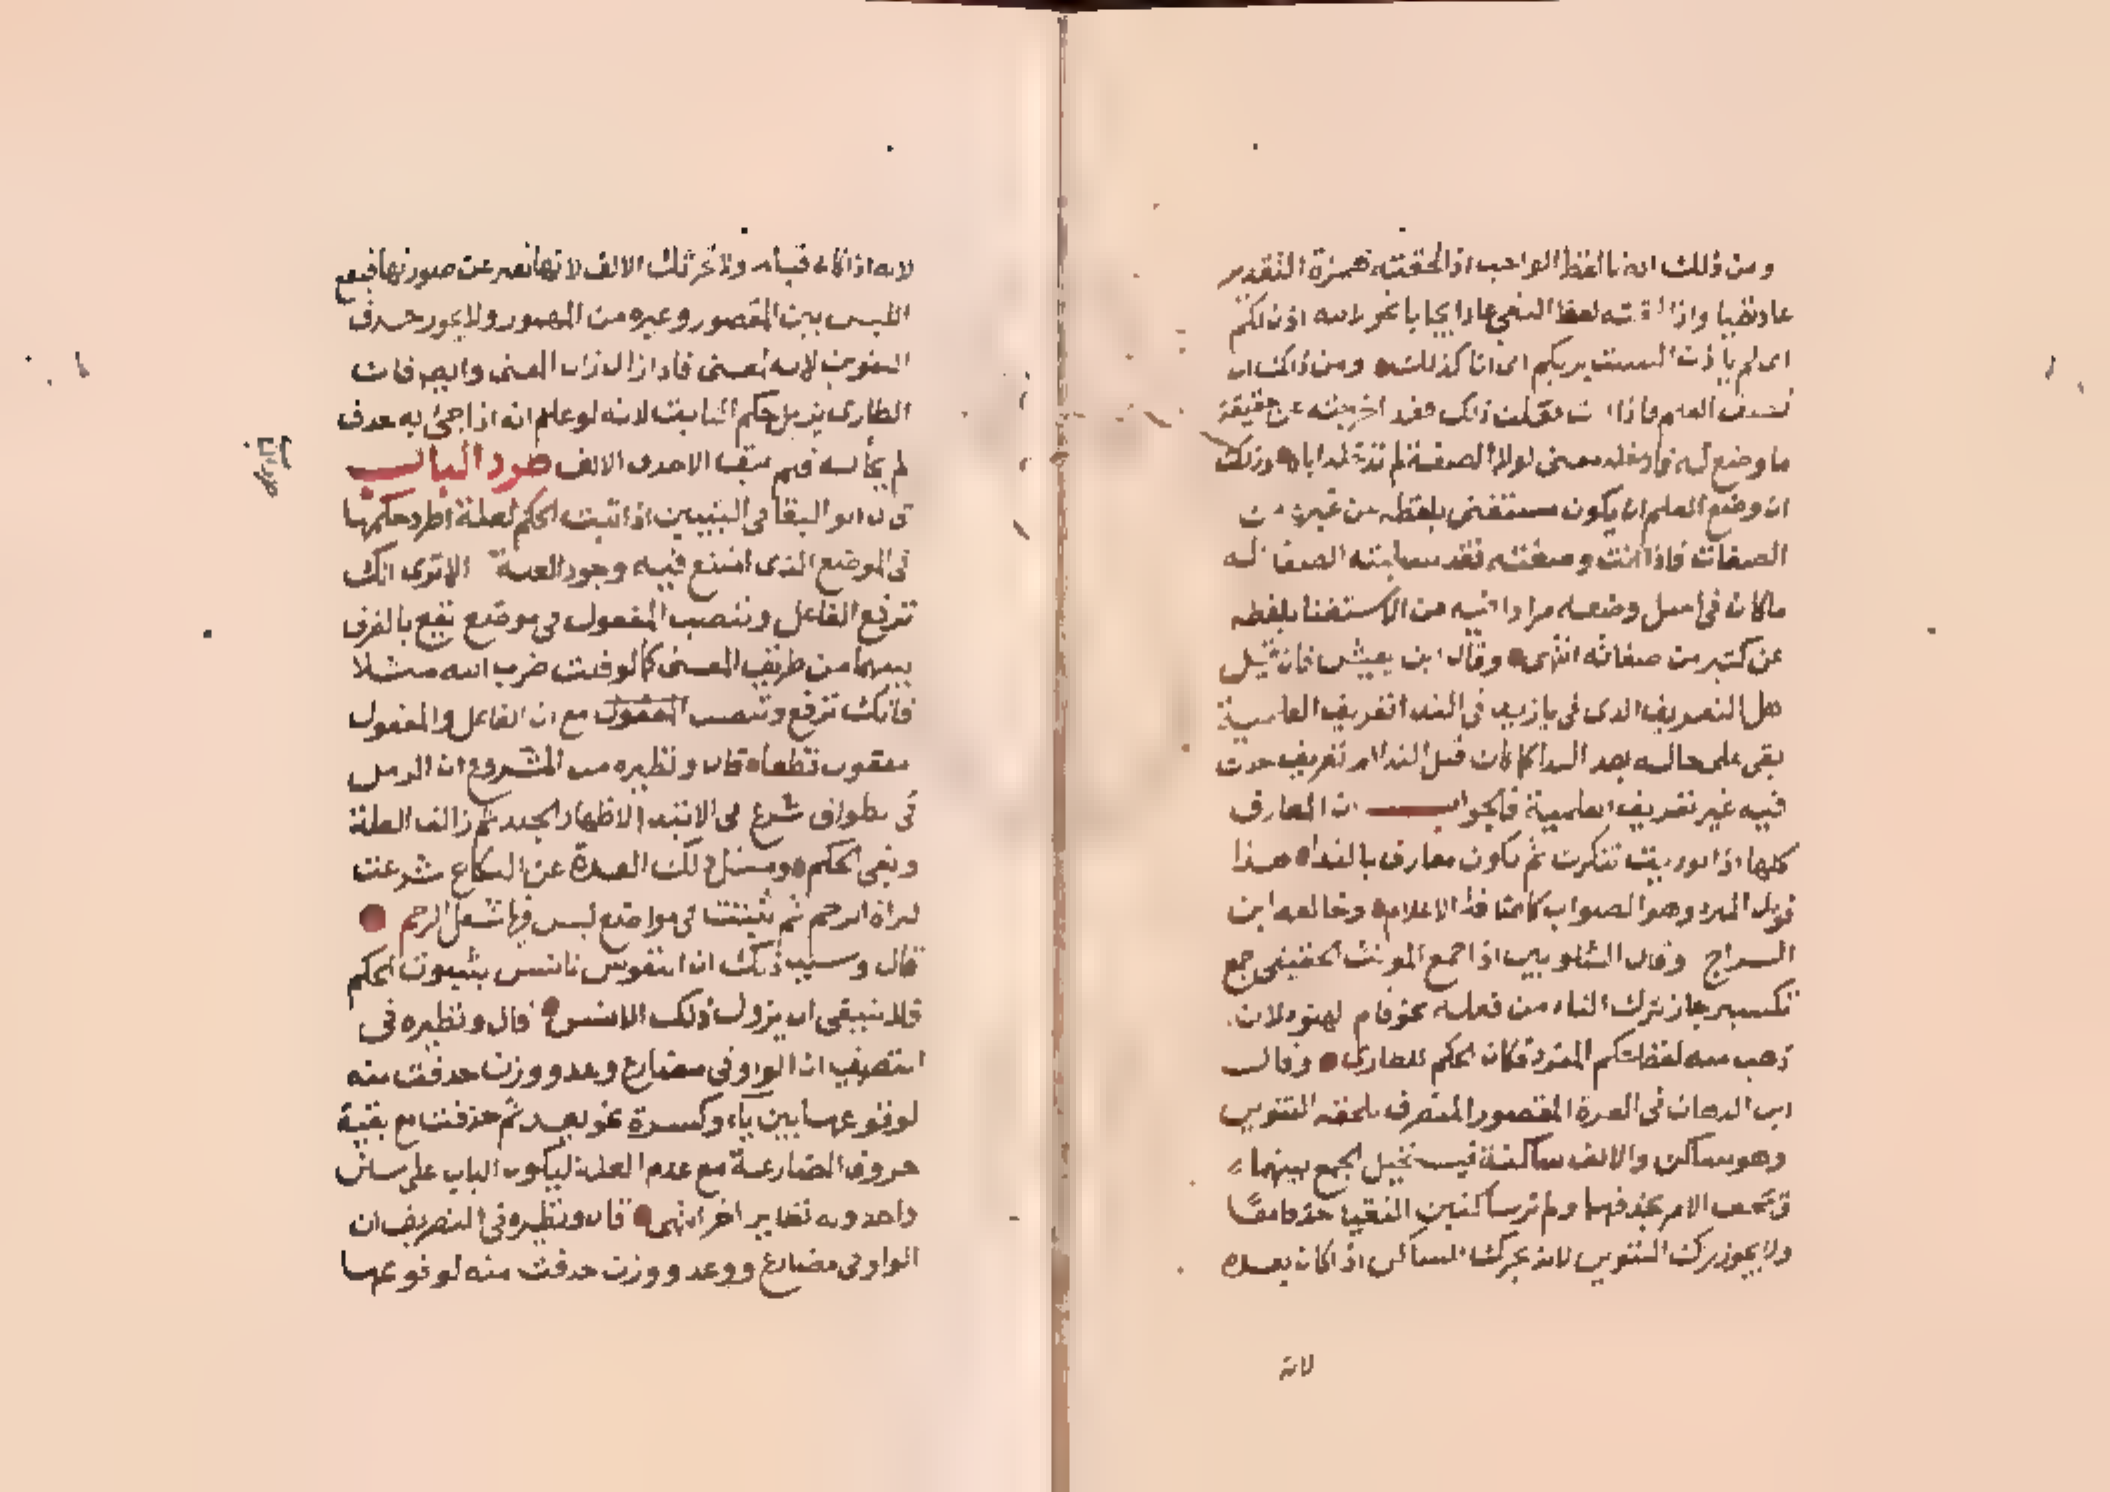 ومن ذلك ان لفظ الواجب اذا لحقته همزة التقدير
عاد نفيا واذا لحقته لفظ النفي عاد ايجابا نحو االله اذن لكم
اى لم ياذن الست بربكم اى انا كذلك ومن ذلك ان
تصف العلم فاذا فعلت ذلك فقد اخرجته عن حقيقة
ما وضع له فادخلته معنى لولا الصفة لم تدخله اياه وذلك
ان وضع العلم ان يكون مستغنى بلفظه عن غيره من
الصفات فاذا انت وصفته فقد سلبته الصفة له
ما كان فى اصل وضعه مرادا فيه من الاستغنا بلفظه
عن كثير من صفاته انتهى وقال ابن يعيش فان قيل
هل التعريف الذى فى يا زيد فى الندا تعريف العلمية
بقى على حاله بعد الندا كما كان قبل الندا ام تعريف حدث
فيه غير تعريف العلمية فالجواب ان المعارف
كلها اذا نوديت تنكرت ثم تكون معارف بالندا هذا
قول المبرد وهو الصواب كاضافة الاعلام وخالفه ابن
السراج وقال الشلوبين اذا جمع المونث الحقيقى جمع
تكسير جاز ترك التاء من فعله نحو قام الهنود لان
ذهب منه لفظ المفرد فكان الحكم للطارى وقال
ابن الدهان فى الغرة المقصور المنصرف يلحقه التنوين
وهو ساكن والالف ساكنة فيستحيل الجمع بينهما
ولم تر ساكنين التقيا حذفا معا
ولا يجوز تحريك التنوين لانه يحرك الساكن اذا كان بعده
لانه
لانه اذا كان قبله ولا تحريك الالف لانها تصير عن صورتها فيقع
اللبس بين المقصور وغيره من المهموز ولا يجوز حذف
التنوين لانه لمعنى فاذا زال زال المعنى وايضا فان
الطارى يزيل حكم الثابت لانه لو علم انه اذا جئ به حذف
لم يجأ به فلم يبق الا حذف الالف طرد الباب
قال ابو البقا فى التبيين اذا ثبت الحكم لعلة اطرد حكمها
فى الموضع الذى امتنع فيه وجود العلة الا ترى انك
ترفع الفاعل وتنصب المفعول فى موضع يقع بالفرق
بينهما من طريق المعنى كما لو قلت ضرب الله مثلا
فانك ترفع وتنصب المفعول مع ان الفاعل والمفعول
معقول قطعا قال ونظيره من المشروع ان الرمل
فى الطواف شرع فى الابتدا لاظهار الجلد ثم زالت العلة
وبقى الحكم ومثل ذلك العدة عن النكاح شرعت
لبراة الرحم ثم ثبتت فى مواضع ليس فيها شغل الرحم
قال وسبب ذلك ان النفوس تانس بثبوت الحكم
فلا ينبغى ان يزول ذلك الانس قال ونظيره فى
التصريف ان الواو فى مضارع وعد ووزن حذفت منه
لوقوعها بين ياء وكسرة نحو يعد ثم حذفت مع بقية
حروف المضارعة مع عدم العلة ليكون الباب على سنن
واحد وله نظاير اخر انتهى قال ونظيره فى التصريف ان
الواو فى مضارع ووعد ووزن حذفت منه لوقوعها